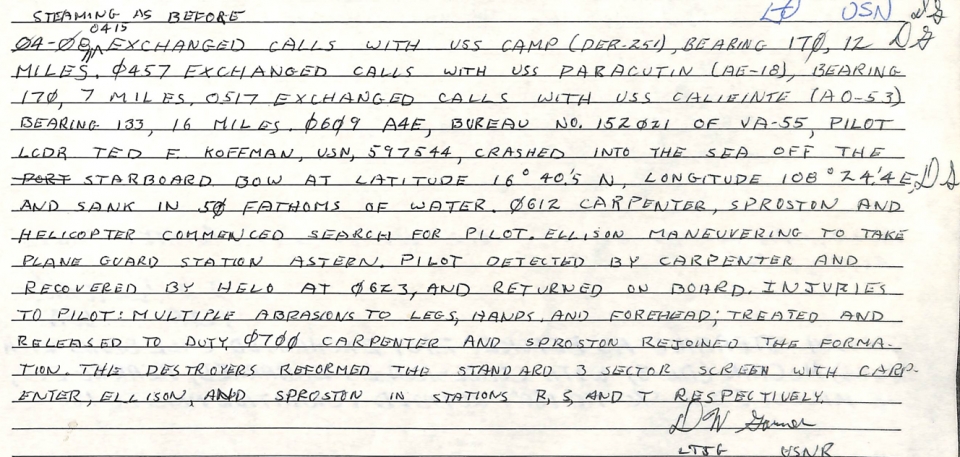 STEAMING AS BEFORE
LT USN
04-08 0415 EXCHANGED CALLS WITH USS CAMP (DER-251), BEARING 170, 12
MILES. 0457 EXCHANGED CALLS WITH USS PARACUTIN (AE-18), BEARING
170, 7 MILES. 0517 EXCHANGED CALLS WITH USS CALIEINTE (AO-53)
BEARING 133, 16 MILES. 0609 A4E, BUREAU NO. 152021 OF VA-55, PILOT
LCDR TED F. KOFFMAN, USN, 597544, CRASHED INTO THE SEA OFF THE
PORT STARBOARD BOW AT LATITUDE 16° 40.'5 N, LONGITUDE 108° 24.'4 E,
AND SANK IN 50 FATHOMS OF WATER. 0612 CARPENTER, SPROSTON AND
HELICOPTER COMMENCED SEARCH FOR PILOT. ELLISON MANEUVERING TO TAKE
PLANE GUARD STATION ASTERN. PILOT DETECTED BY CARPENTER AND
RECOVERED BY HELO AT 0623, AND RETURNED ON BOARD. INJURIES
TO PILOT: MULTIPLE ABRASIONS TO LEGS, HANDS, AND FOREHEAD; TREATED AND
RELEASED TO DUTY. 0700 CARPENTER AND SPROSTON REJOINED THE FORMA-
TION. THE DESTROYERS REFORMED THE STANDARD 3 SECTOR SCREEN WITH CARP-
ENTER, ELLISON, AND SPROSTON IN STATIONS R, S, AND T RESPECTIVELY.
D W
LTJG USNR